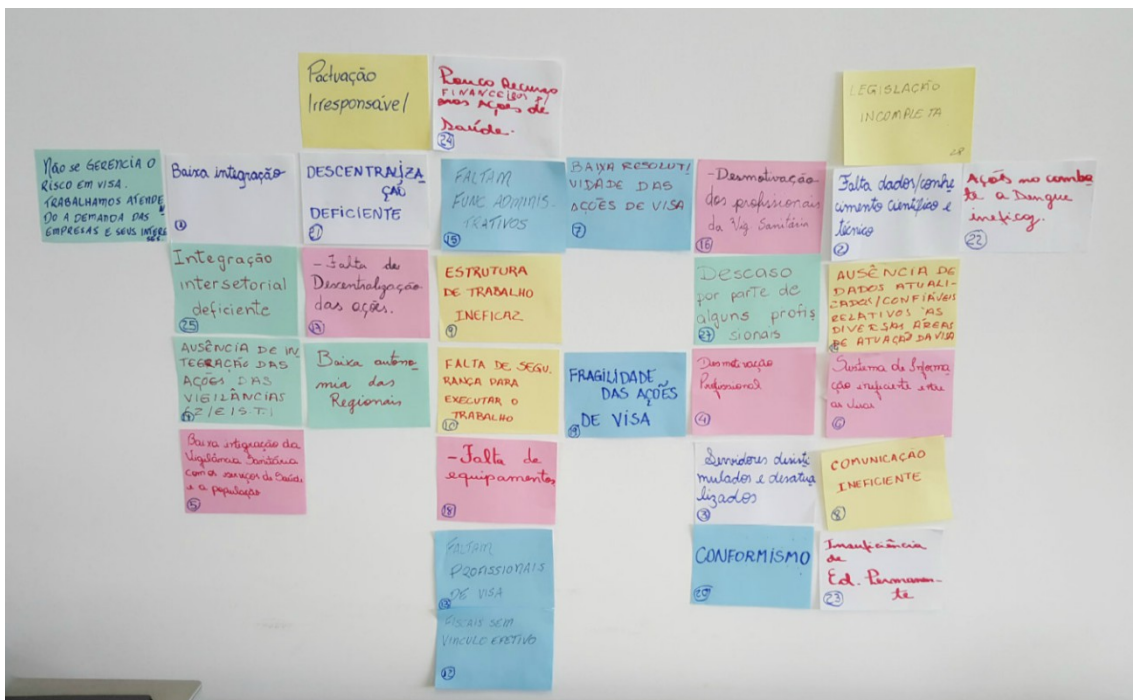 Pactuação
Irresponsável
Pouco Recurso
FINANCEIROS P/
mas Ações de
Saúde.
24
LEGISLAÇÃO
INCOMPLETA
28
Não se GERENCIA O
RISCO EM VISA.
TRABALHAMOS ATENDE
DO A DEMANDA DAS
EMPRESAS E SEUS INTERES
SES.
Baixa integração
1
DESCENTRALIZA
ÇÃO
DEFICIENTE
21
FALTAM
FUNC ADMINIS
TRATIVOS
15
BAIXA RESOLUTI
VIDADE DAS
AÇÕES DE VISA
7
-Desmotivação
dos profissionais
da Vig. Sanitária
16
Falta dados/conhe
cimento científico e
técnico
2
Ações no comba
te a Dengue
ineficaz.
22
Integração
intersetorial
deficiente
25
-Falta de
Descentralização
das ações.
17
ESTRUTURA
DE TRABALHO
INEFICAZ
9
Descaso
por parte de
alguns profis
sionais
27
AUSÊNCIA DE
DADOS ATUALI-
ZADOS/CONFIÁVEIS
RELATIVOS ÀS
DIVERSAS ÁREAS
DE ATUAÇÃO DA VISA
AUSÊNCIA DE IN
TEGRAÇÃO DAS
AÇÕES DAS
VIGILÂNCIAS
Baixa autono
mia das
Regionais
FALTA DE SEGU.
RANÇA PARA
EXECUTAR O
TRABALHO
10
FRAGILIDADE
DAS AÇÕES
DE VISA
19
Desmotivação
Profissional
4
Sistema de Informa
ção ineficiente entre
as visas
6
Baixa integração da
Vigilância Sanitária
com os serviços de Saúde
e a população
5
-Falta de
equipamentos
18
Servidores desesti
mulados e desatua
lizados
3
COMUNICAÇÃO
INEFICIENTE
8
FALTAM
PROFISSIONAIS
DE VISA
13
CONFORMISMO
20
Insuficiência
de
Ed. Permanen-
te
23
FISCAIS SEM
VINCULO EFETIVO
12